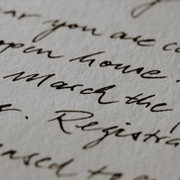 you are co
open house
March the
Registra
to